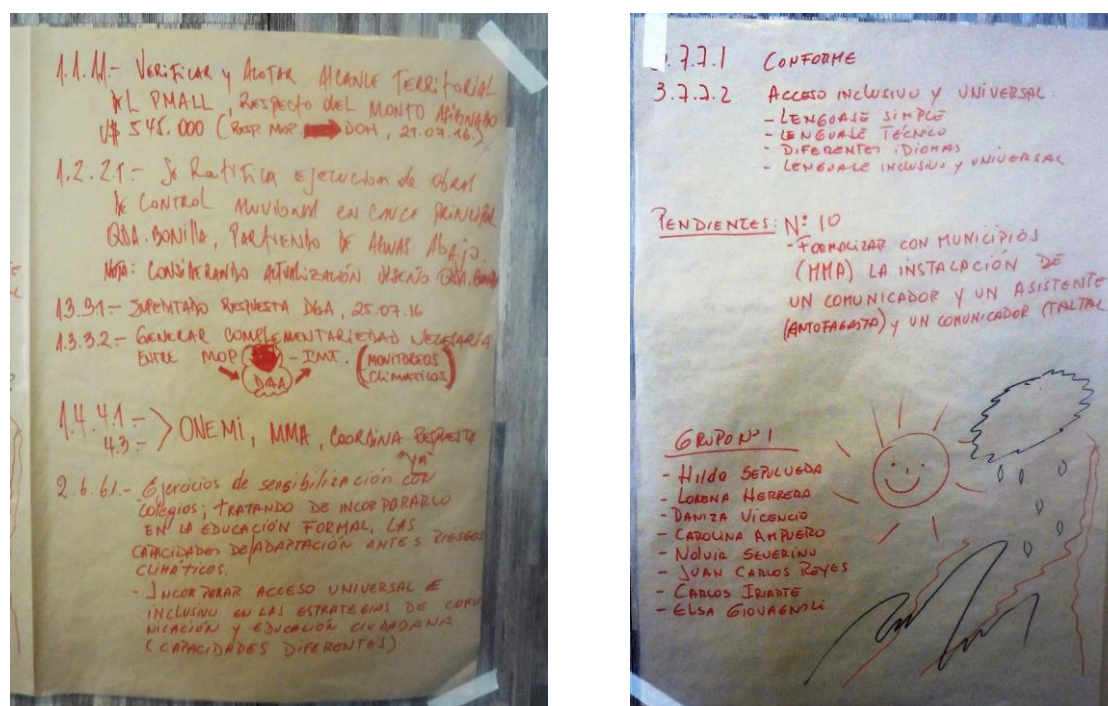 1.1.11.- VERIFICAR y ACOTAR ALCANCE TERRITORIAL
DEL PMALL, RESPECTO DEL MONTO ASIGNADO
U$ 545.000 (RESP. MOP. DOH, 21.07.16)
1.2.2.1.- Se RATIFICA EJECUCION de obras
DE CONTROL ALUVIONAL EN CAUCE PRINCIPAL
QDA. BONILLA, PARTIENDO DE AGUAS ABAJO.
NOTA: CONSIDERANDO ACTUALIZACIÓN DISEÑO QDA. BONILLA
1.3.3.1.- SUPEDITADO RESPUESTA DGA, 25.07.16
1.3.3.2.- GENERAR COMPLEMENTARIEDAD NECESARIA
ENTRE MOP - IMT. (MONITOREOS
DGA CLIMATICOS)
1.4.4.1.-
4.3.- > ONEMI, MMA, COORDINA RESPUESTA
"YA"
2.6.6.1.- Ejercicios de sensibilización con
colegios; TRATANDO DE INCORPORARLO
EN LA EDUCACIÓN FORMAL, LAS
CAPACIDADES DE ADAPTACIÓN ANTES RIESGOS
CLIMÁTICOS.
- INCORPORAR ACCESO UNIVERSAL E
INCLUSIVO EN LAS ESTRATEGIAS DE COMU
NICACIÓN Y EDUCACIÓN CIUDADANA
(CAPACIDADES DIFERENTES)
.7.7.1 CONFORME
3.7.7.2 ACCESO INCLUSIVO Y UNIVERSAL:
- LENGUAJE SIMPLE
- LENGUAJE TÉCNICO
- DIFERENTES IDIOMAS
- LENGUAJE INCLUSIVO Y UNIVERSAL
PENDIENTES: Nº 10
- FORMALIZAR CON MUNICIPIOS
(MMA) LA INSTALACIÓN DE
UN COMUNICADOR Y UN ASISTENTE
(ANTOFAGASTA) y UN COMUNICADOR (TALTAL
GRUPO Nº 1
- Hilda SEPULVEDA
- LORENA HERRERA
- DANIZA VICENCIO
- CAROLINA AMPUERO
- Nolvia SEVERINO
- JUAN CARLOS REYES
- CARLOS IRIARTE
- ELSA GIOVAGNOLI